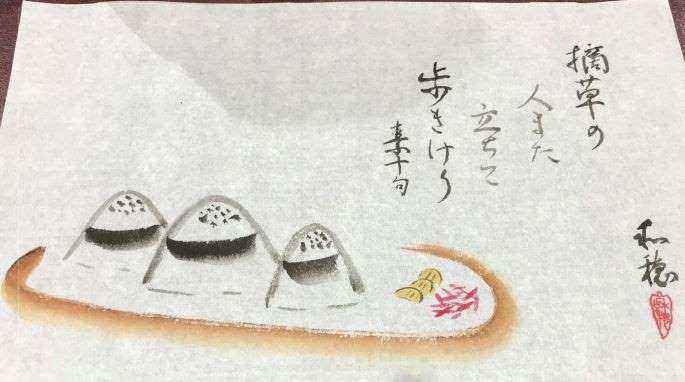 摘草の
人また
立ちて
歩きけり
素十句
和穂